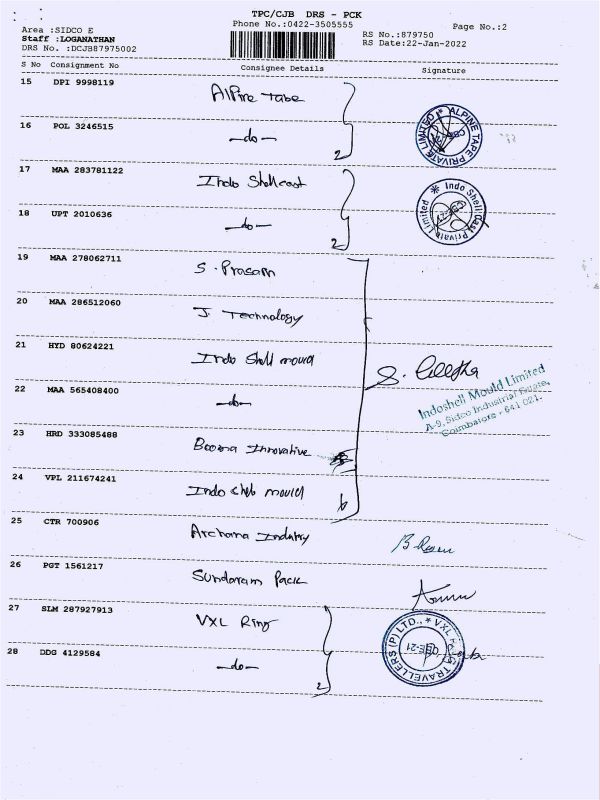 TPC/CJB DRS - PCK
Phone No.:0422-3505555
Page No.:2
Area :SIDCO E
Staff :LOGANATHAN
DRS No. :DCJB87975002
RS No.:879750
RS Date:22-Jan-2022
S No Consignment No Consignee Details Signature
15 DPI 9998119 Alpine Tabe
16 POL 3246515 —do— 2
ALPINE TAPE PRIVATE LIMITED
17 MAA 283781122 Indo Shellcast
18 UPT 2010636 —do— 2
Indo Shell Cast Private Limited
19 MAA 278062711 S. Prasam
20 MAA 286512060 J. Technology
21 HYD 80624221 Indo Shell mould
22 MAA 565408400 —do—
Indoshell Mould Limited
A-9, Sidco Industrial Estate,
Coimbatore - 641 021.
23 HRD 333085488 Booma Innovative
24 VPL 211674241 Indo shell mould 6
25 CTR 700906 Archana Industry
26 PGT 1561217 Sundaram Pack
27 SLM 287927913 VXL Ring
28 DDG 4129584 —do— 2
VXL RING TRAVELLERS (P) LTD.,